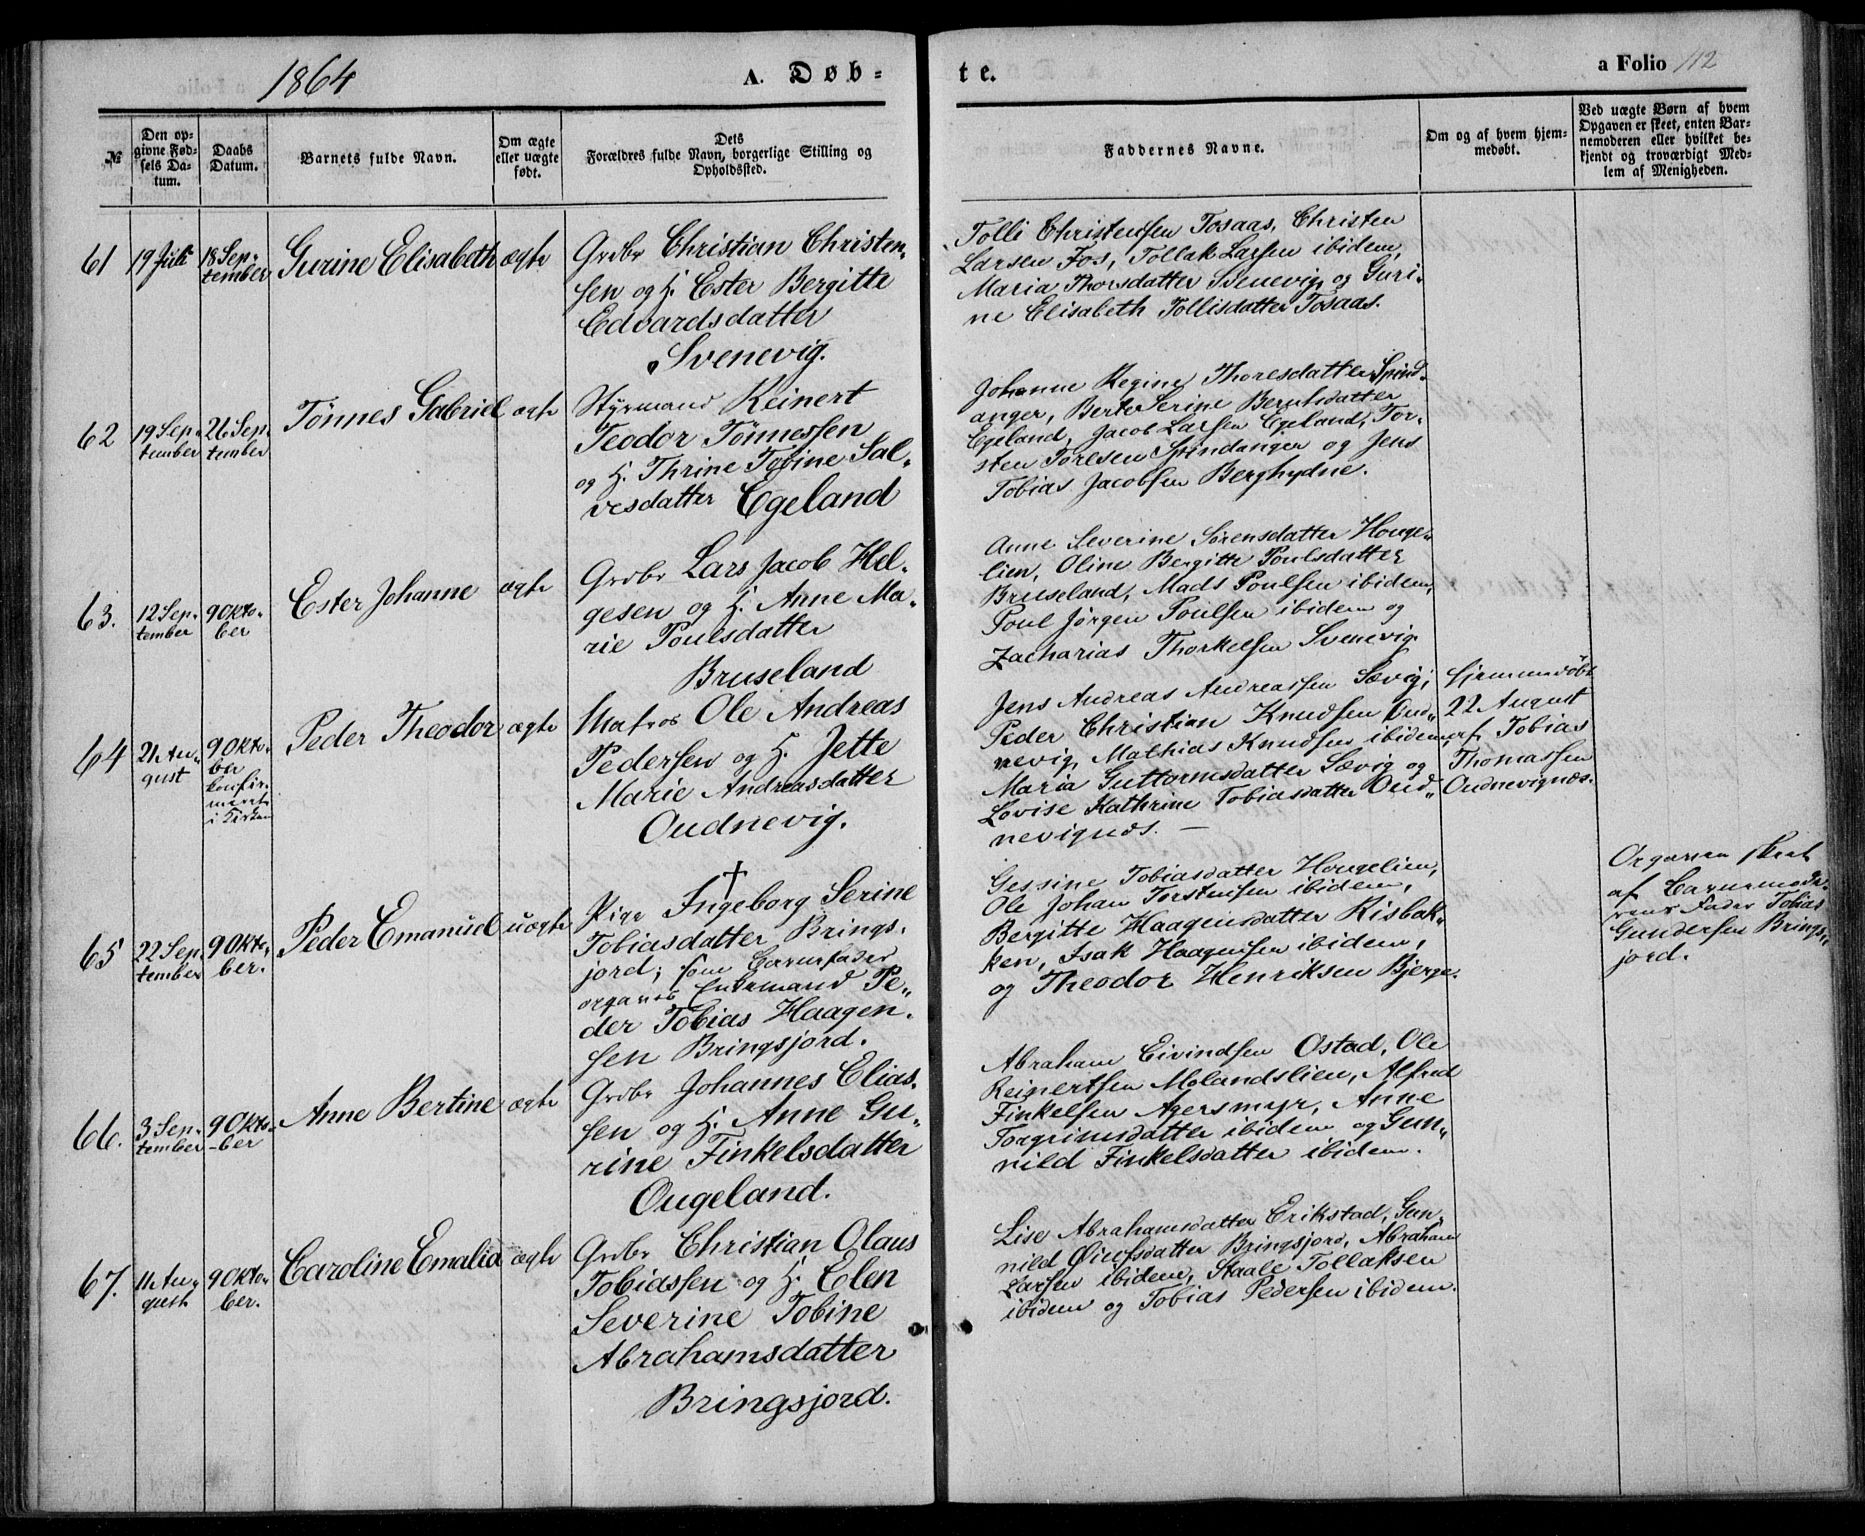 1864
A. Døb-
te.
a Folio 112
№
Den op-
givne Fød-
sels Da-
tum.
Daabs
Datum.
Barnets fulde Navn.
Om ægte
eller uægte
født.
Dets
Forældres fulde Navn, borgerlige Stilling og
Opholdssted.
Faddernes Navne.
Om og af hvem hjem-
medøbt.
Ved uægte Børn af hvem
Opgaven er skeet, enten Bar-
nemoderen eller hvilket be-
kjendt og troværdigt Med-
lem af Menigheden.
61
19 Juli
18 Sep-
tember
Gurine Elisabeth
ægte
Grdbr Christian Christen-
sen og H. Ester Bergitte
Edvardsdatter
Svenevig.
Tolli Christensen Tosaas, Christen
Larsen Fos, Tollak Larsen ibidem,
Maria Thorsdatter Svenevig, og Guri-
ne Elisabeth Tollisdatter Tosaas.
62
19 Sep-
tember
26 Sep-
tember
Tönnes Gabriel
ægte
Styrmand Reinert
Teodor Tönnessen
og H. Thrine Tobine Sal-
vesdatter Egeland
Johanne Regine Thoresdatter Spind-
anger, Berte Serine Berntsdatter
Egeland, Jacob Larsen Egeland, Tor-
sten Toresen Spindanger og Jens
Tobias Jacobsen Berghydne.
63.
12 Sep-
tember
9 Okto-
ber
Ester Johanne
ægte
Grdbr Lars Jacob Hel-
gesen og H. Anne Ma-
rie Poulsdatter
Bruseland
Anne Severine Sørensdatter Houge-
lien, Oline Bergitte Poulsdatter
Bruseland, Mads Poulsen ibidem,
Poul Jörgen Poulsen ibidem og
Zacharias Thorkelsen Svenevig.
64
21 Au-
gust
9 Okto-
ber
konfir-
meret
i Kirken
Peder Theodor
ægte
Matros Ole Andreas
Pedersen og H. Jette
Marie Andreasdatter
Oudnevig.
Jens Andreas Andreassen Sævig,
Peder Christian Knudsen Oud-
nevig, Mathias Knudsen ibidem,
Maria Guttormsdatter Sævig og
Lovise Kathrine Tobiasdatter Oud-
nevignæs. —
Hjemmedöbt
22 August
af Tobias
Thomassen
Oudnevignæs.
65
22 Sep-
tember
9 Okto-
ber.
Peder Emanuel
uægte
Pige † Ingeborg Serine
Tobiasdatter Brings-
jord; som Barnefader
opgaves Enkemand Pe-
der Tobias Haagen-
sen Bringsjord.
Gessine Tobiasdatter Hougelien,
Ole Johan Torstensen ibidem,
Bergitte Haagensdatter Risbak-
ken, Isak Haagensen ibidem,
og Theodor Henriksen Bjerge.
Opgaven skeet
af Barnemode-
rens Fader Tobias
Gundersen Brings-
jord.
66.
3 Sep-
tember
9 Okto-
ber
Anne Bertine
ægte
Grdbr Johannes Elias-
sen og H. Anne Gu-
rine Finkelsdatter
Ougeland.
Abraham Eivindsen Ostad, Ole
Reinertsen Molandslien, Alfred
Finkelsen Agersmyr, Anne
Torgrimsdatter ibidem og Gun-
nild Finkelsdatter ibidem.
67.
11 Au-
gust
9 Okto-
ber.
Caroline Emalia
ægte
Grdbr Christian Olaus
Tobiassen og H. Elen
Severine Tobine
Abrahamsdatter
Bringsjord.
Lise Abrahamsdatter Erikstad, Gun-
nild Øiufsdatter Bringsjord, Abraham
Larsen ibidem, Staale Tollaksen
ibidem og Tobias Pedersen ibidem.